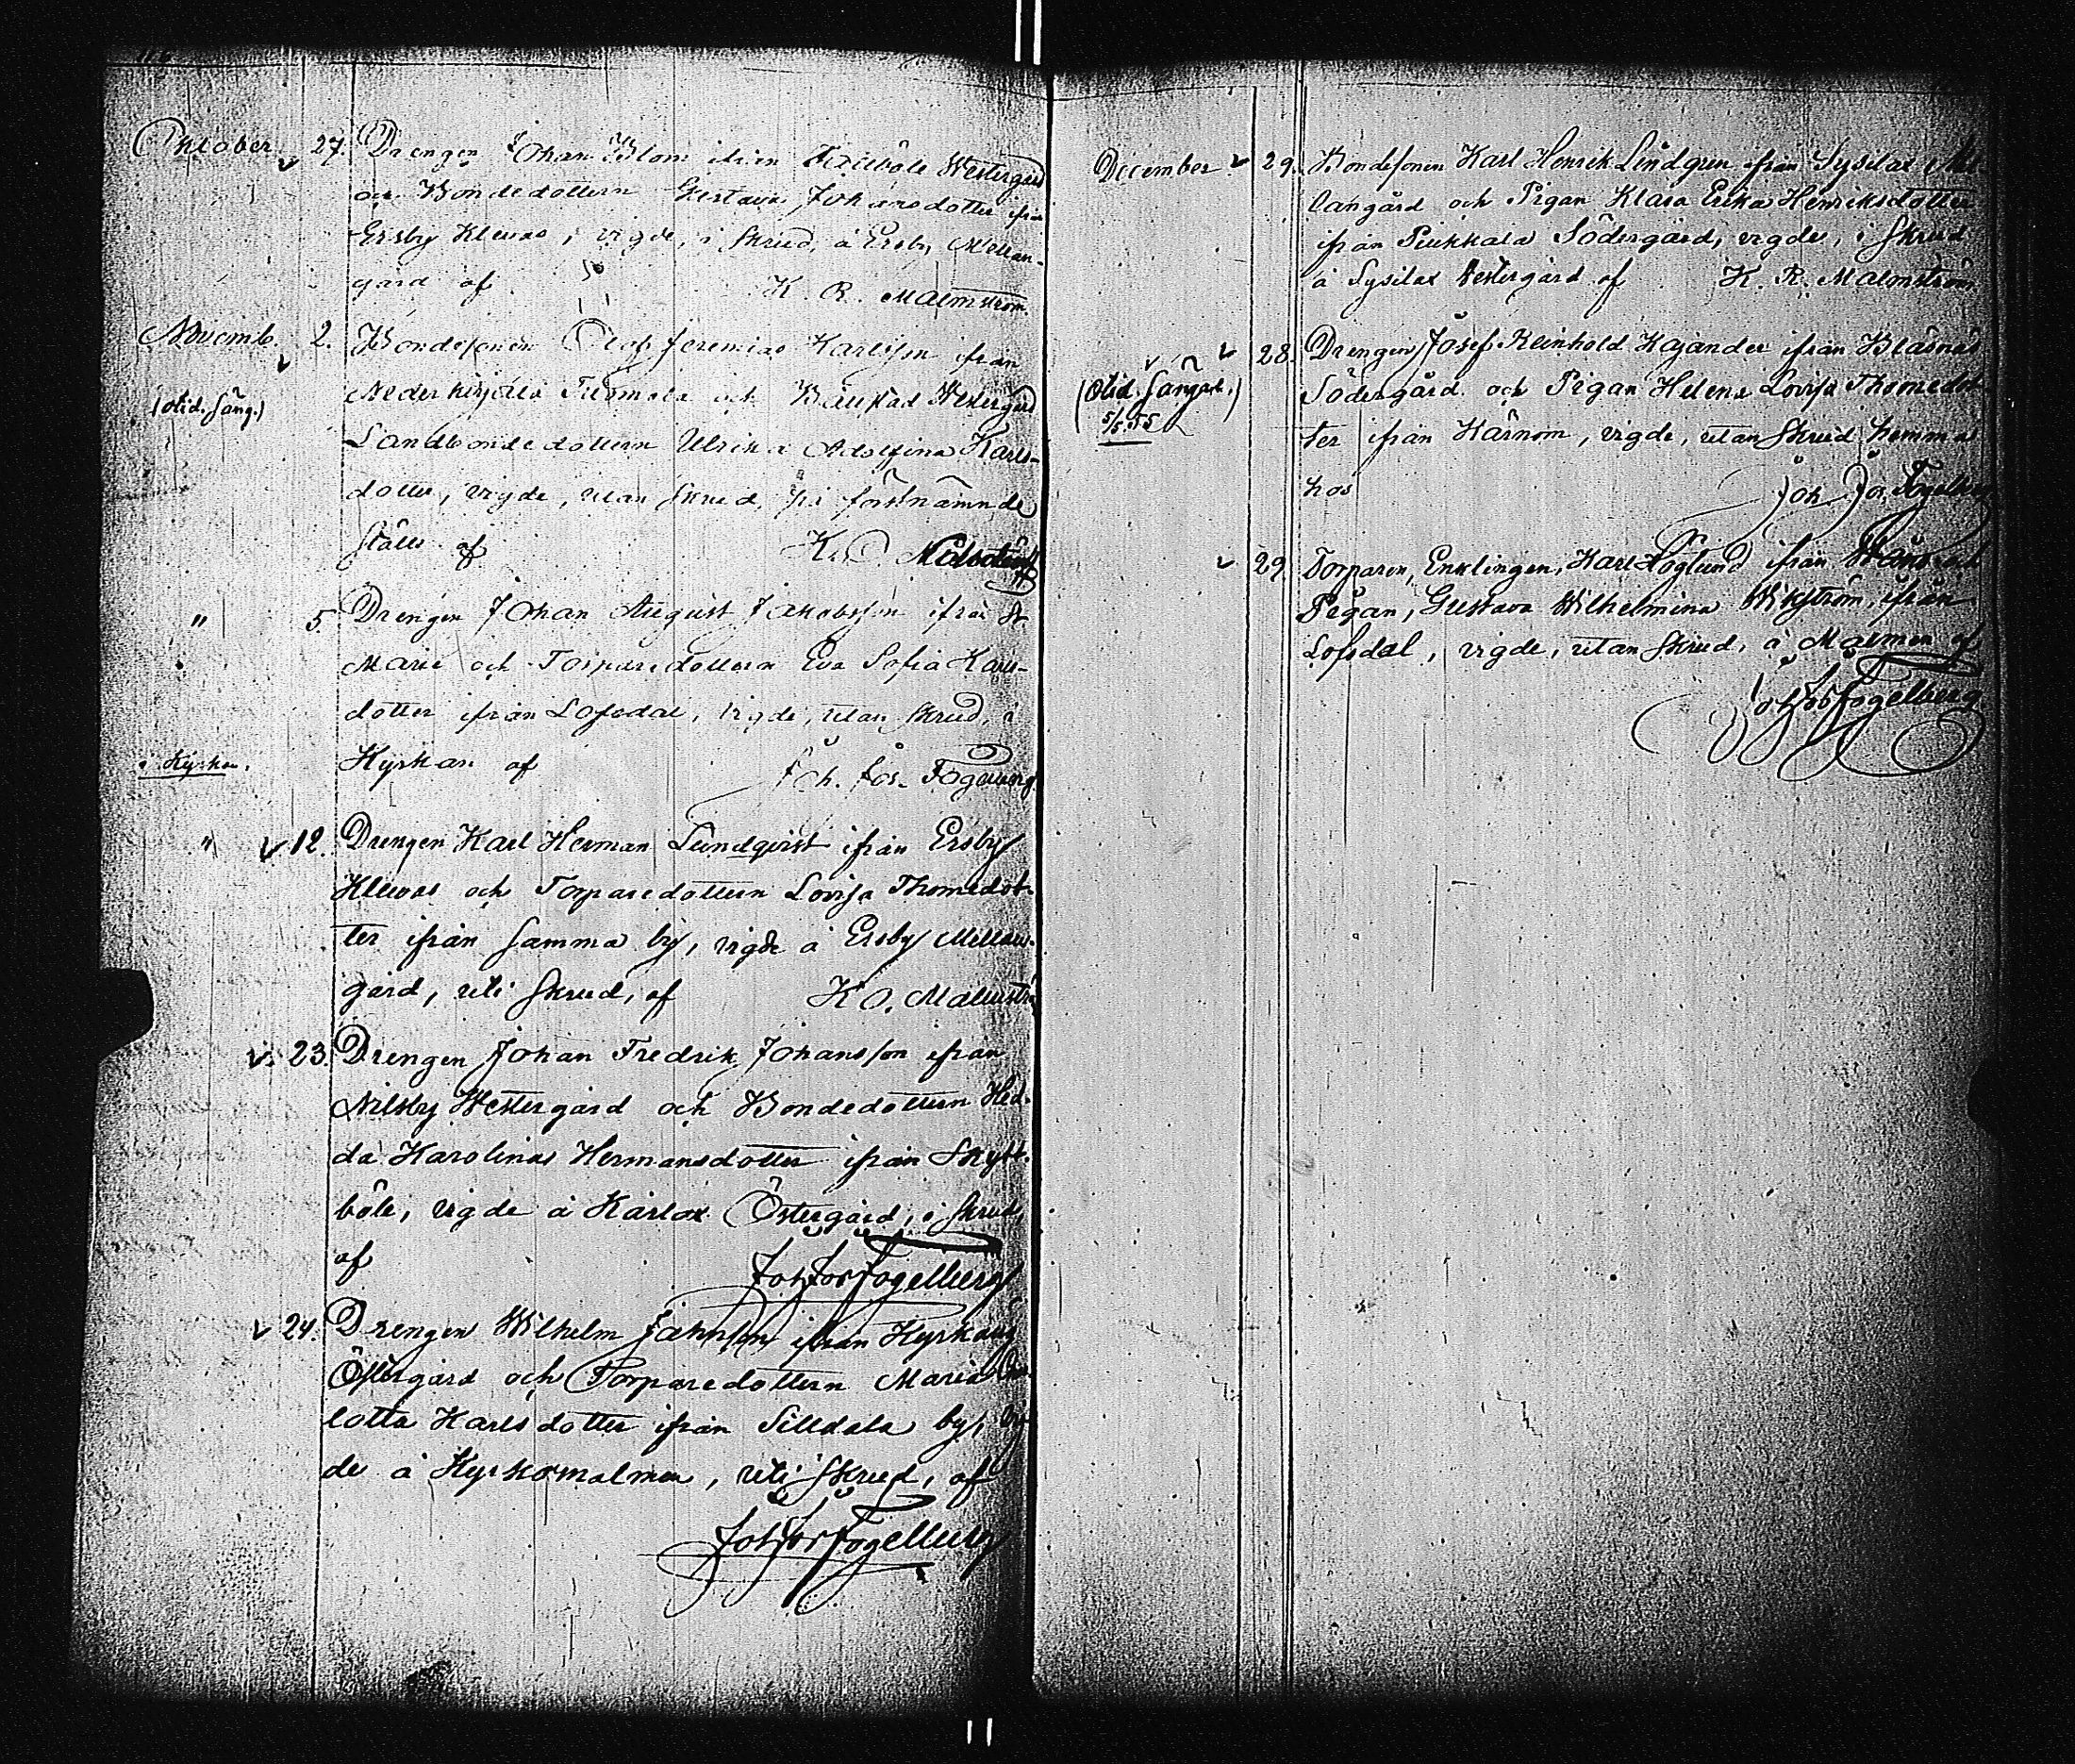 Oktober. 27. Drengen Johan Blom ifrån Westergård
och Bondedottern Gustava Johansdotter ifrån
Ersby Klewas, vigde, i Skrud, å Ersby Mellan-
gård af K. R. Malmström.
Novemb. 2. Bondesonen Olof Jeremias Karlsson ifrån
(otid. säng.) och Westergård
Landbondedottern Ulrika Adolfina Karls-
dotter, vigde, utan Skrud, på förstnämnde
ställe af
" 5. Drengen Johan August Jakobsson ifrån St.
Marie och Torparedottern Eva Sofia Karls-
dotter ifrån Lofsdal, vigde, utan Skrud, i
i Kyrkan. Kyrkan af Joh. Jos. Fogelberg
" 12. Drengen Karl Herman Lundqvist ifrån Ersby
Klewas och Torparedottern Lovisa Thomedot-
ter ifrån samma by, vigde å Ersby Mellan-
gård, uti Skrud, af K. O. Malmström
23. Drengen Johan Fredrik Johansson ifrån
Nilsby Westergård och Bondedottern Hed-
da Karolina Hermansdotter ifrån Skytt-
böle, vigde å Kärlax Östergård, i Skrud,
af Joh Jos Fogelberg
24. Drengen Wilhelm Jahnsson ifrån
Östergård och Torparedottern Maria Char-
lotta Karlsdotter ifrån Silldala by, vig-
de å Kyrkomalmen, uti Skrud, af
Joh Jos Fogelberg
December. 29. Bondesonen Karl Henrik Lindgren ifrån Sysilax Mel-
langård och Pigan Klara Erika Henriksdotter
ifrån Piukkala Södergård, vigde, i Skrud
å Sysilax Westergård af K. R. Malmström
28. Drengen Josef Reinhold Kajander ifrån Bläsnäs
(Otid. Sängel.) Södergård och Pigan Helena Lovisa Thomedot-
5/5 55 ter ifrån Kärnom, vigde, utan Skrud hemma
hos Joh Jos. Fogelberg
29. Torparen, Enklingen, Karl Höglund ifrån och
Pigan, Gustava Wilhelmina Wikström, ifrån
Lofsdal, vigde, utan Skrud, å Malmen af
Joh Jos Fogelberg